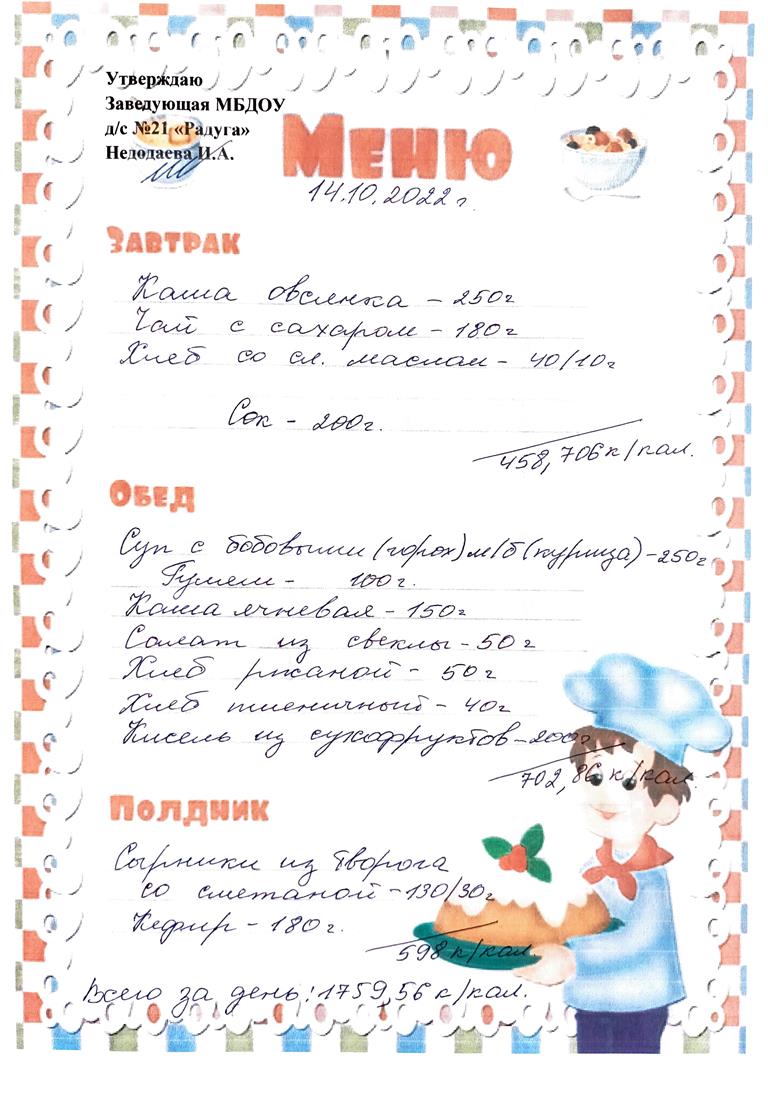 Утверждаю
Заведующая МБДОУ
д/с №21 «Радуга»
Недодаева И.А.
Меню
14.10.2022 г.
Завтрак
Каша овсянка - 250г
Чай с сахаром - 180г
Хлеб со сл. маслом - 40/10г
Сок - 200г.
458,706 к/кал.
Обед
Суп с бобовыми (горох) м/б (курица) - 250г
Гуляш - 100г.
Каша ячневая - 150г
Салат из свеклы - 50г
Хлеб ржаной - 50г
Хлеб пшеничный - 40г
Кисель из сухофруктов - 200г
702,86 к/кал.
Полдник
Сырники из творога
со сметаной - 130/30г
Кефир - 180г.
598 к/кал.
Всего за день: 1759,56 к/кал.